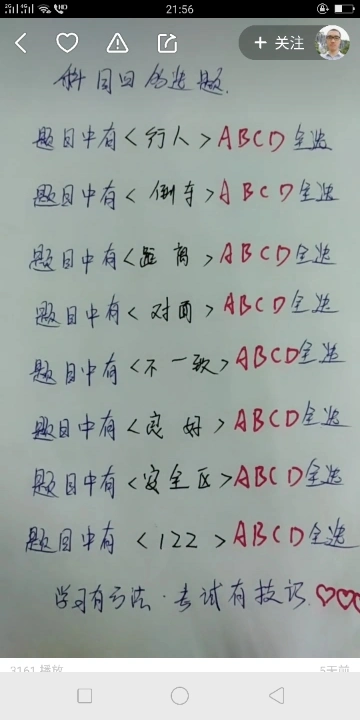 21:56
+ 关注
科目四多选题.
题目中有<行人>ABCD全选
题目中有<倒车>ABCD全选
题目中有<距离>ABCD全选
题目中有<对面>ABCD全选
题目中有<不一致>ABCD全选
题目中有<良好>ABCD全选
题目中有<安全区>ABCD全选
题目中有<122>ABCD全选
学习有方法·考试有技巧.
3161 播放
5天前